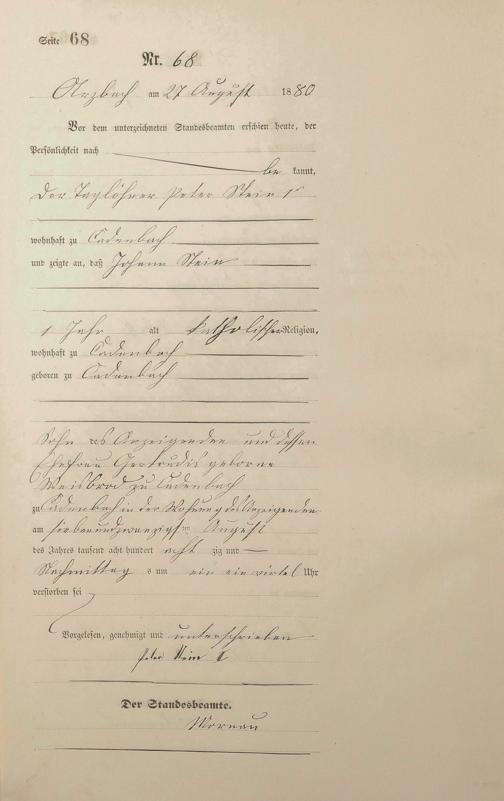 Seite 68
Nr. 68
Arzbach am 27 August 1880
Vor dem unterzeichneten Standesbeamten erschien heute, der
Persönlichkeit nach
be kannt,
Der Taglöhner Peter Stein 1r
wohnhaft zu Cadenbach
und zeigte an, daß Johann Stein
1 Jahr alt katholischer Religion,
wohnhaft zu Cadenbach
geboren zu Cadenbach
Sohn des Anzeigenden und dessen
Ehefrau Gertrudis geborne
Weisbrod zu Cadenbach
zu Cadenbach in der Wohnung des Anzeigenden
am siebenundzwanzigsten August
des Jahres tausend acht hundert acht zig und
Nachmittag s um ein ein virtel Uhr
verstorben sei
Vorgelesen, genehmigt und unterschrieben
Peter Stein I
Der Standesbeamte.
Moreau